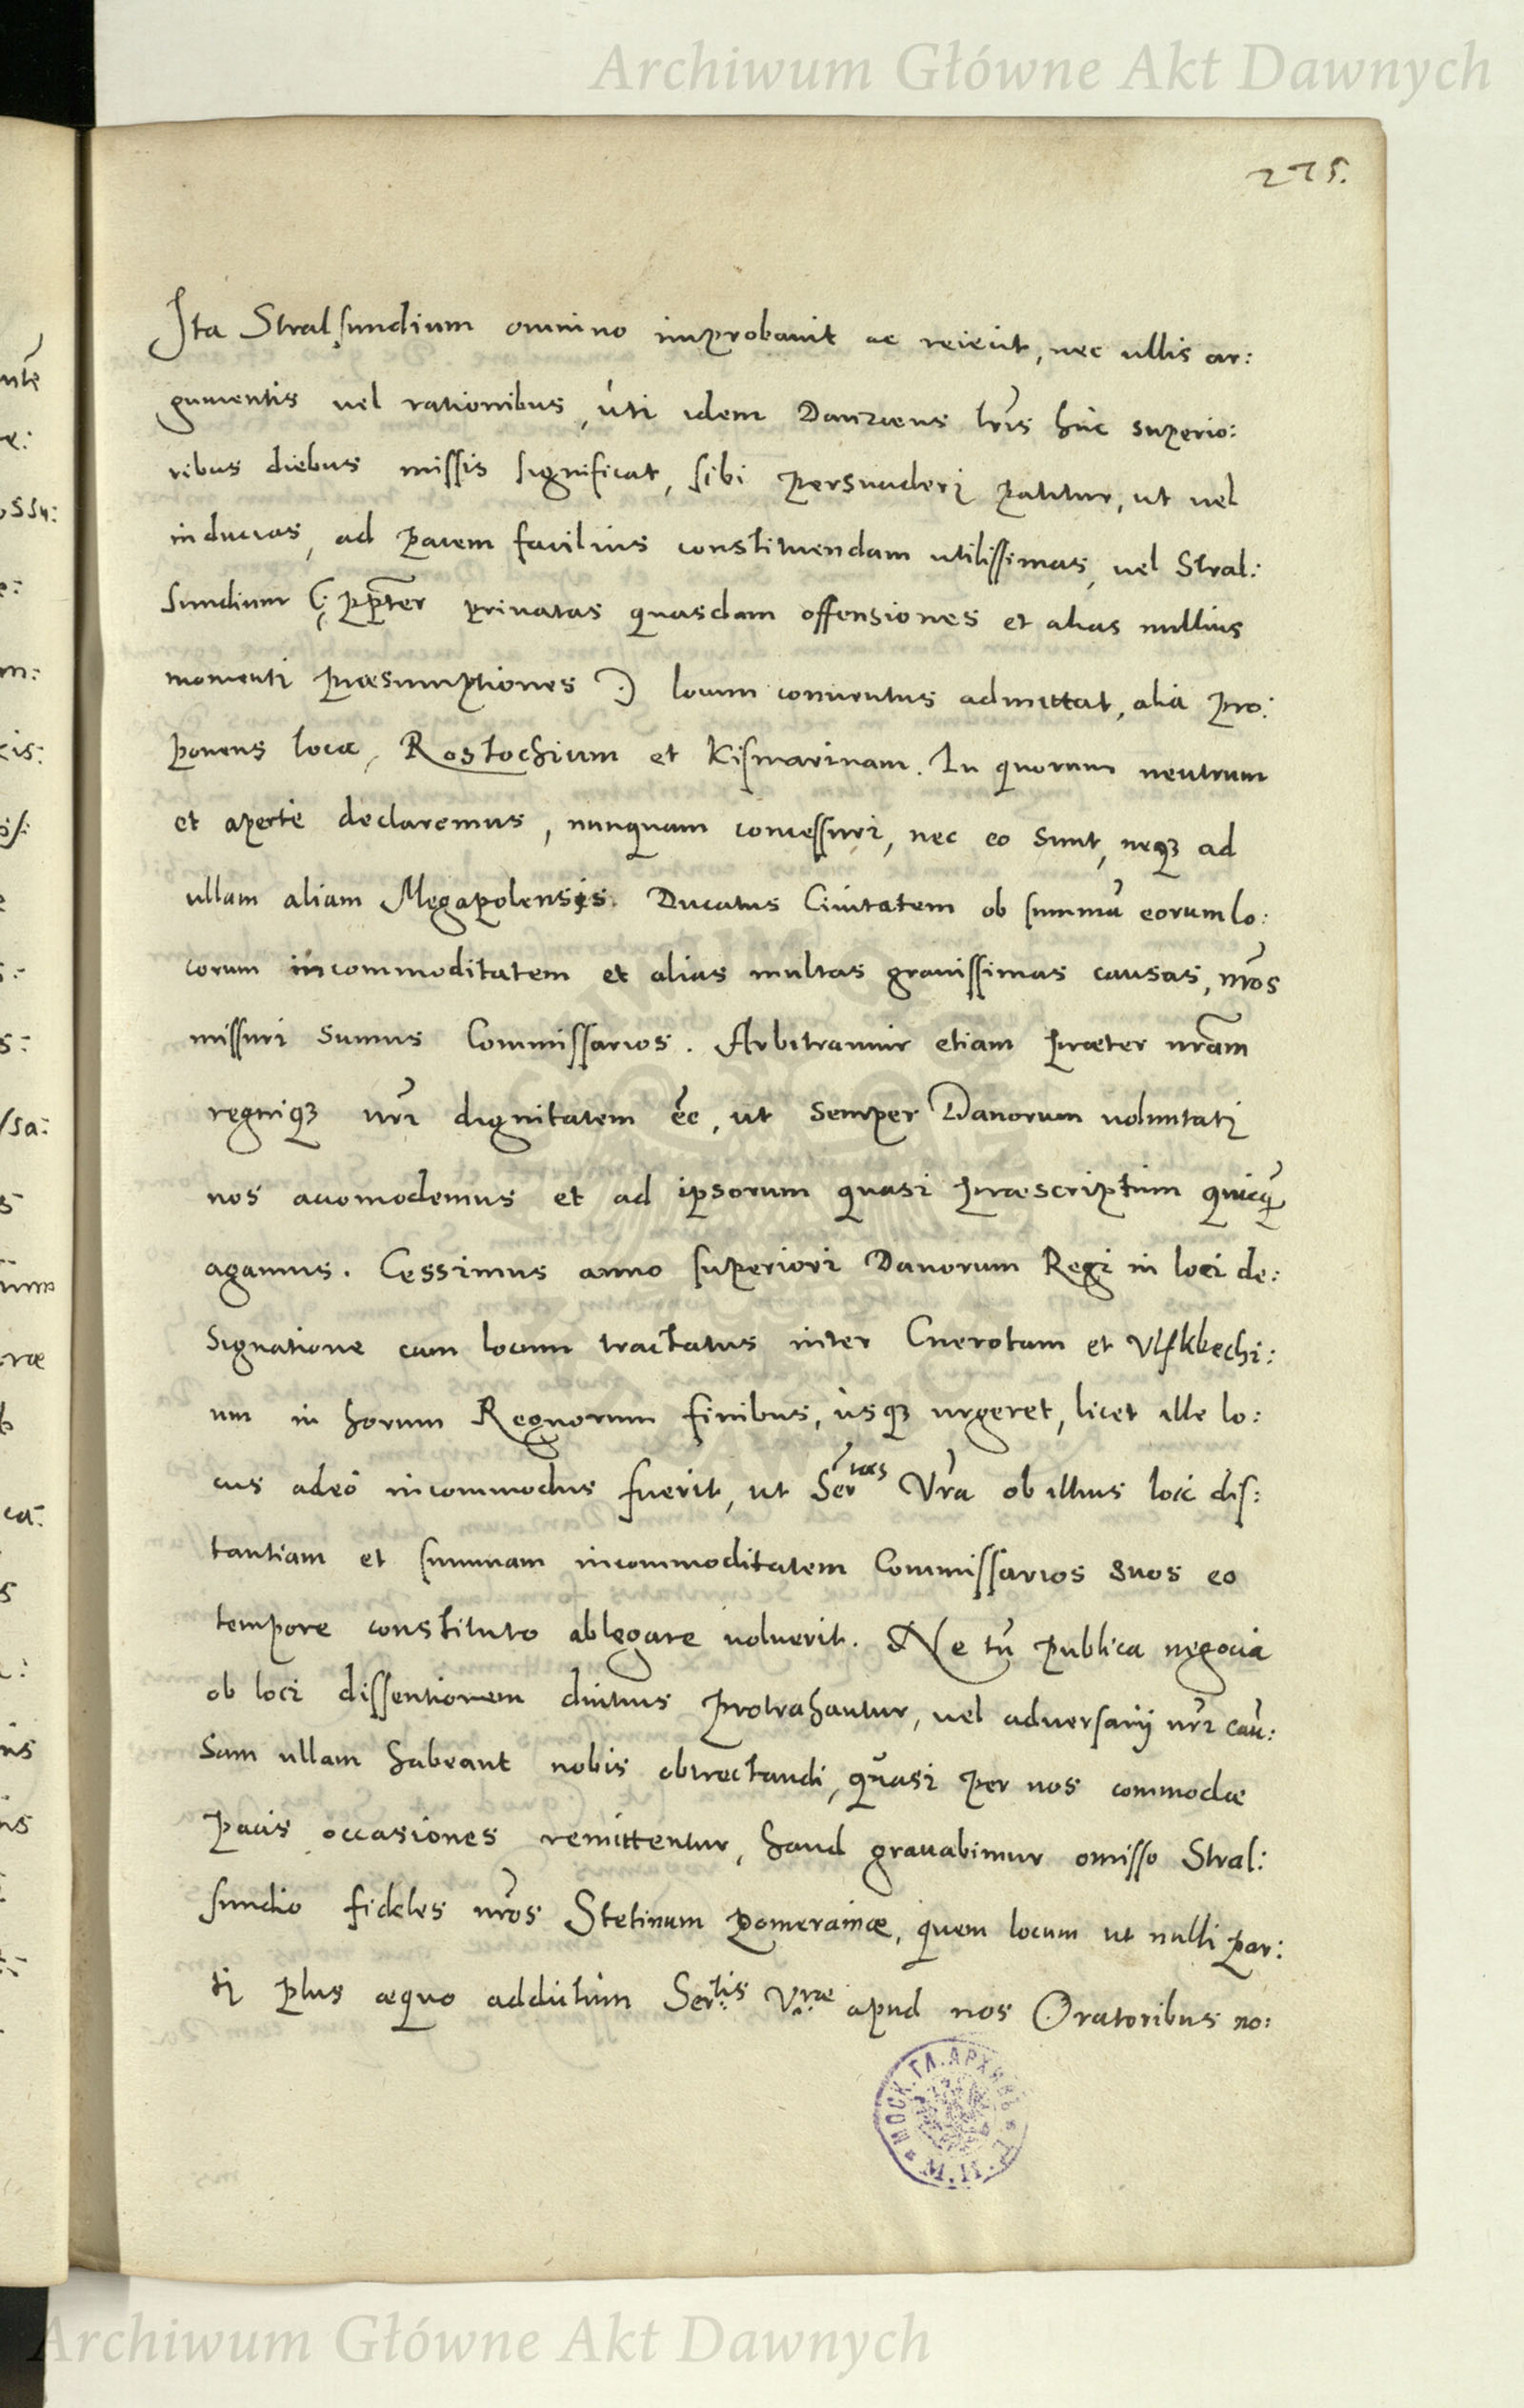 Archiwum Główne Akt Dawnych
275.
Ita Stralsundium omnino improbauit ac reiecit, nec ullis ar:
gumentis uel rationibus, uti idem Danzaeus lr̃is huc superio:
ribus diebus missis significat, sibi persuaderi patitur, ut uel
inducias, ad pacem facilius constituendam utilissimas, uel Stral:
sundium (: pp̃ter priuatas quasdam offensiones et alias nullius
momenti præsumptiones :) locum conuentus admittat, alia pro:
ponens loca, Rostochium et Kismarinam. In quorum neutrum
et aperte declaremus, nunquam concessuri, nec eo sunt, neqꝫ ad
ullam aliam Megapolensis Ducatus Ciuitatem ob summũ eorum lo:
corum incommoditatem et alias multas grauissimas causas, nr̃os
missuri sumus Commissarios. Arbitramur etiam præter nr̃am
regniqꝫ nr̃i dignitatem eẽ, ut semper Danorum uoluntati
nos accomodemus et ad ipsorum quasi præscriptum quicq̃
agamus. Cessimus anno superiori Danorum Regi in loci de:
signatione cum locum tractatus inter Cnerotam et Ulfkbechi:
um in horum Regnorum finibus, usqꝫ urgeret, licet ille lo:
cus adeo incommodus fuerit, ut Ser̃tas Vr̃a ob illius loci dis:
tantiam et summam incommoditatem Commissarios suos eo
tempore constituto ablegare noluerit. Ne tñ publica negocia
ob loci dissentionem diutius protrahantur, uel aduersarij nr̃i cau:
sam ullam habeant nobis obtrectandi, quasi per nos commodæ
pacis occasiones remittentur, haud grauabimur omisso Stral:
sundio fideles nr̃os Stetinum Pomeraniæ, quem locum ut nulli par:
ti plus æquo addictum Ser:tis V:ræ apud nos Oratoribus no:
МОСК. ГЛ. АРХИВЪ
М.И.Д.
Archiwum Główne Akt Dawnych